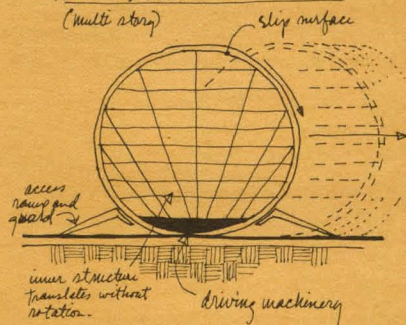 (multi story)
slip surface
access
ramp and
guard
inner structure
translates without
rotation.
driving machinery